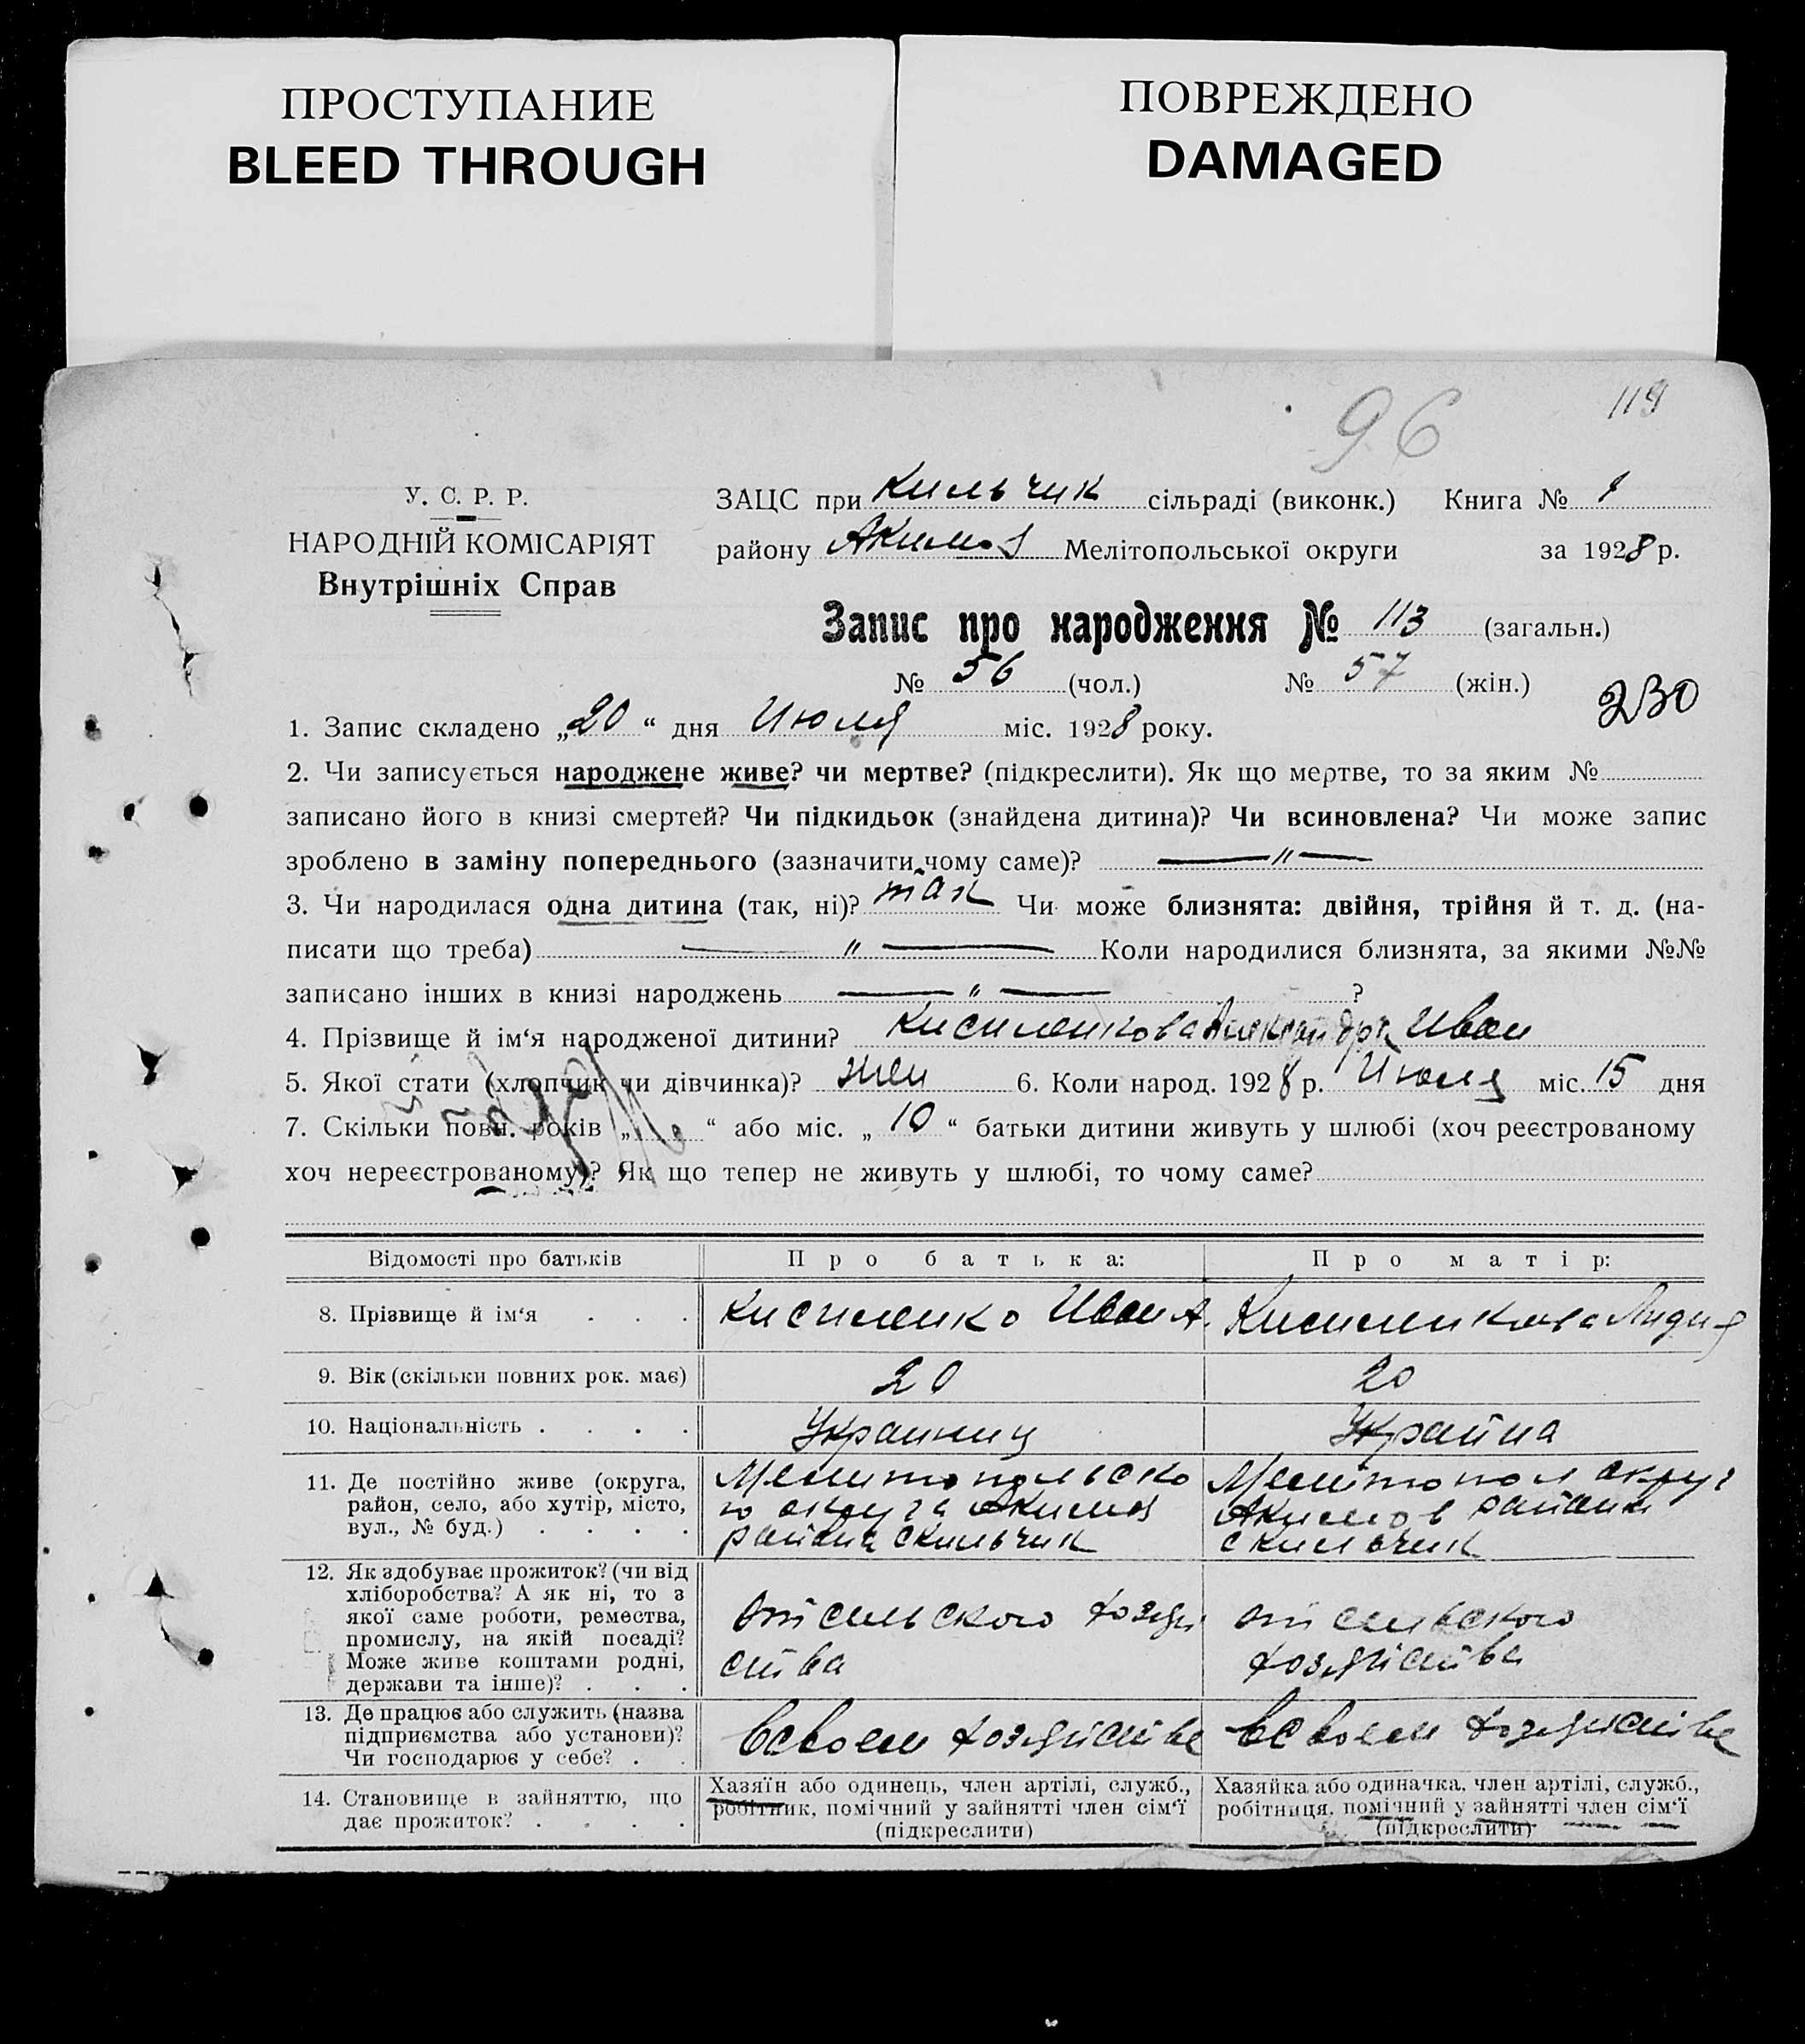 ПРОСТУПАНИЕ
BLEED THROUGH
ПОВРЕЖДЕНО
DAMAGED
96
119
У. С. Р. Р.
НАРОДНІЙ КОМІСАРІЯТ
Внутрішніх Справ
ЗАЦС при Кильчик сільраді (виконк.) Книга № 1
району Акимов Мелітопольської округи за 1928 р.
Запис про народження № 113 (загальн.)
№ 56 (чол.) № 57 (жін.)
230
1. Запис складено „20“ дня Июля міс. 1928 року.
2. Чи записується народжене живе? чи мертве? (підкреслити). Як що мертве, то за яким №
записано його в книзі смертей? Чи підкидьок (знайдена дитина)? Чи всиновлена? Чи може запис
зроблено в заміну попереднього (зазначити чому саме)? — " —
3. Чи народилася одна дитина (так, ні)? так Чи може близнята: двійня, трійня й т. д. (на-
писати що треба) — " — Коли народилися близнята, за якими №№
записано інших в книзі народжень — " — ?
4. Прізвище й ім‘я народженої дитини? Александра Иван
5. Якої стати (хлопчик чи дівчинка)? жен 6. Коли народ. 1928 р. Июля міс. 15 дня
7. Скільки повн. років „ “ або міс. „ 10 “ батьки дитини живуть у шлюбі (хоч реєстрованому
хоч нереєстрованому)? Як що тепер не живуть у шлюбі, то чому саме?
Відомості про батьків
Про батька:
Про матір:
8. Прізвище й ім‘я . . .
Кисиленко Иван А.
Лидия
9. Вік (скільки повних рок. має)
20
20
10. Національність . . . .
Украинец
Украина
11. Де постійно живе (округа,
район, село, або хутір, місто,
вул., № буд.) . . . .
Мелитопольско
го округа Акимов
района с Кильчик
Мелитопол округ
Акимов района
с Кильчик
12. Як здобуває прожиток? (чи від
хліборобства? А як ні, то з
якої саме роботи, ремества,
промислу, на якій посаді?
Може живе коштами родні,
держави та інше)? . . .
от сельского хозяй
ства
от сельского
хозяйства
13. Де працює або служить (назва
підприємства або установи)?
Чи господарює у себе? . .
в своем хозяйстве
в своем хозяйстве
14. Становище в зайняттю, що
дає прожиток? . . . .
Хазяїн або одинець, член артілі, служб.,
робітник, помічний у зайнятті член сім‘ї
(підкреслити)
Хазяйка або одиначка, член артілі, служб.,
робітниця, помічний у зайнятті член сім‘ї
(підкреслити)